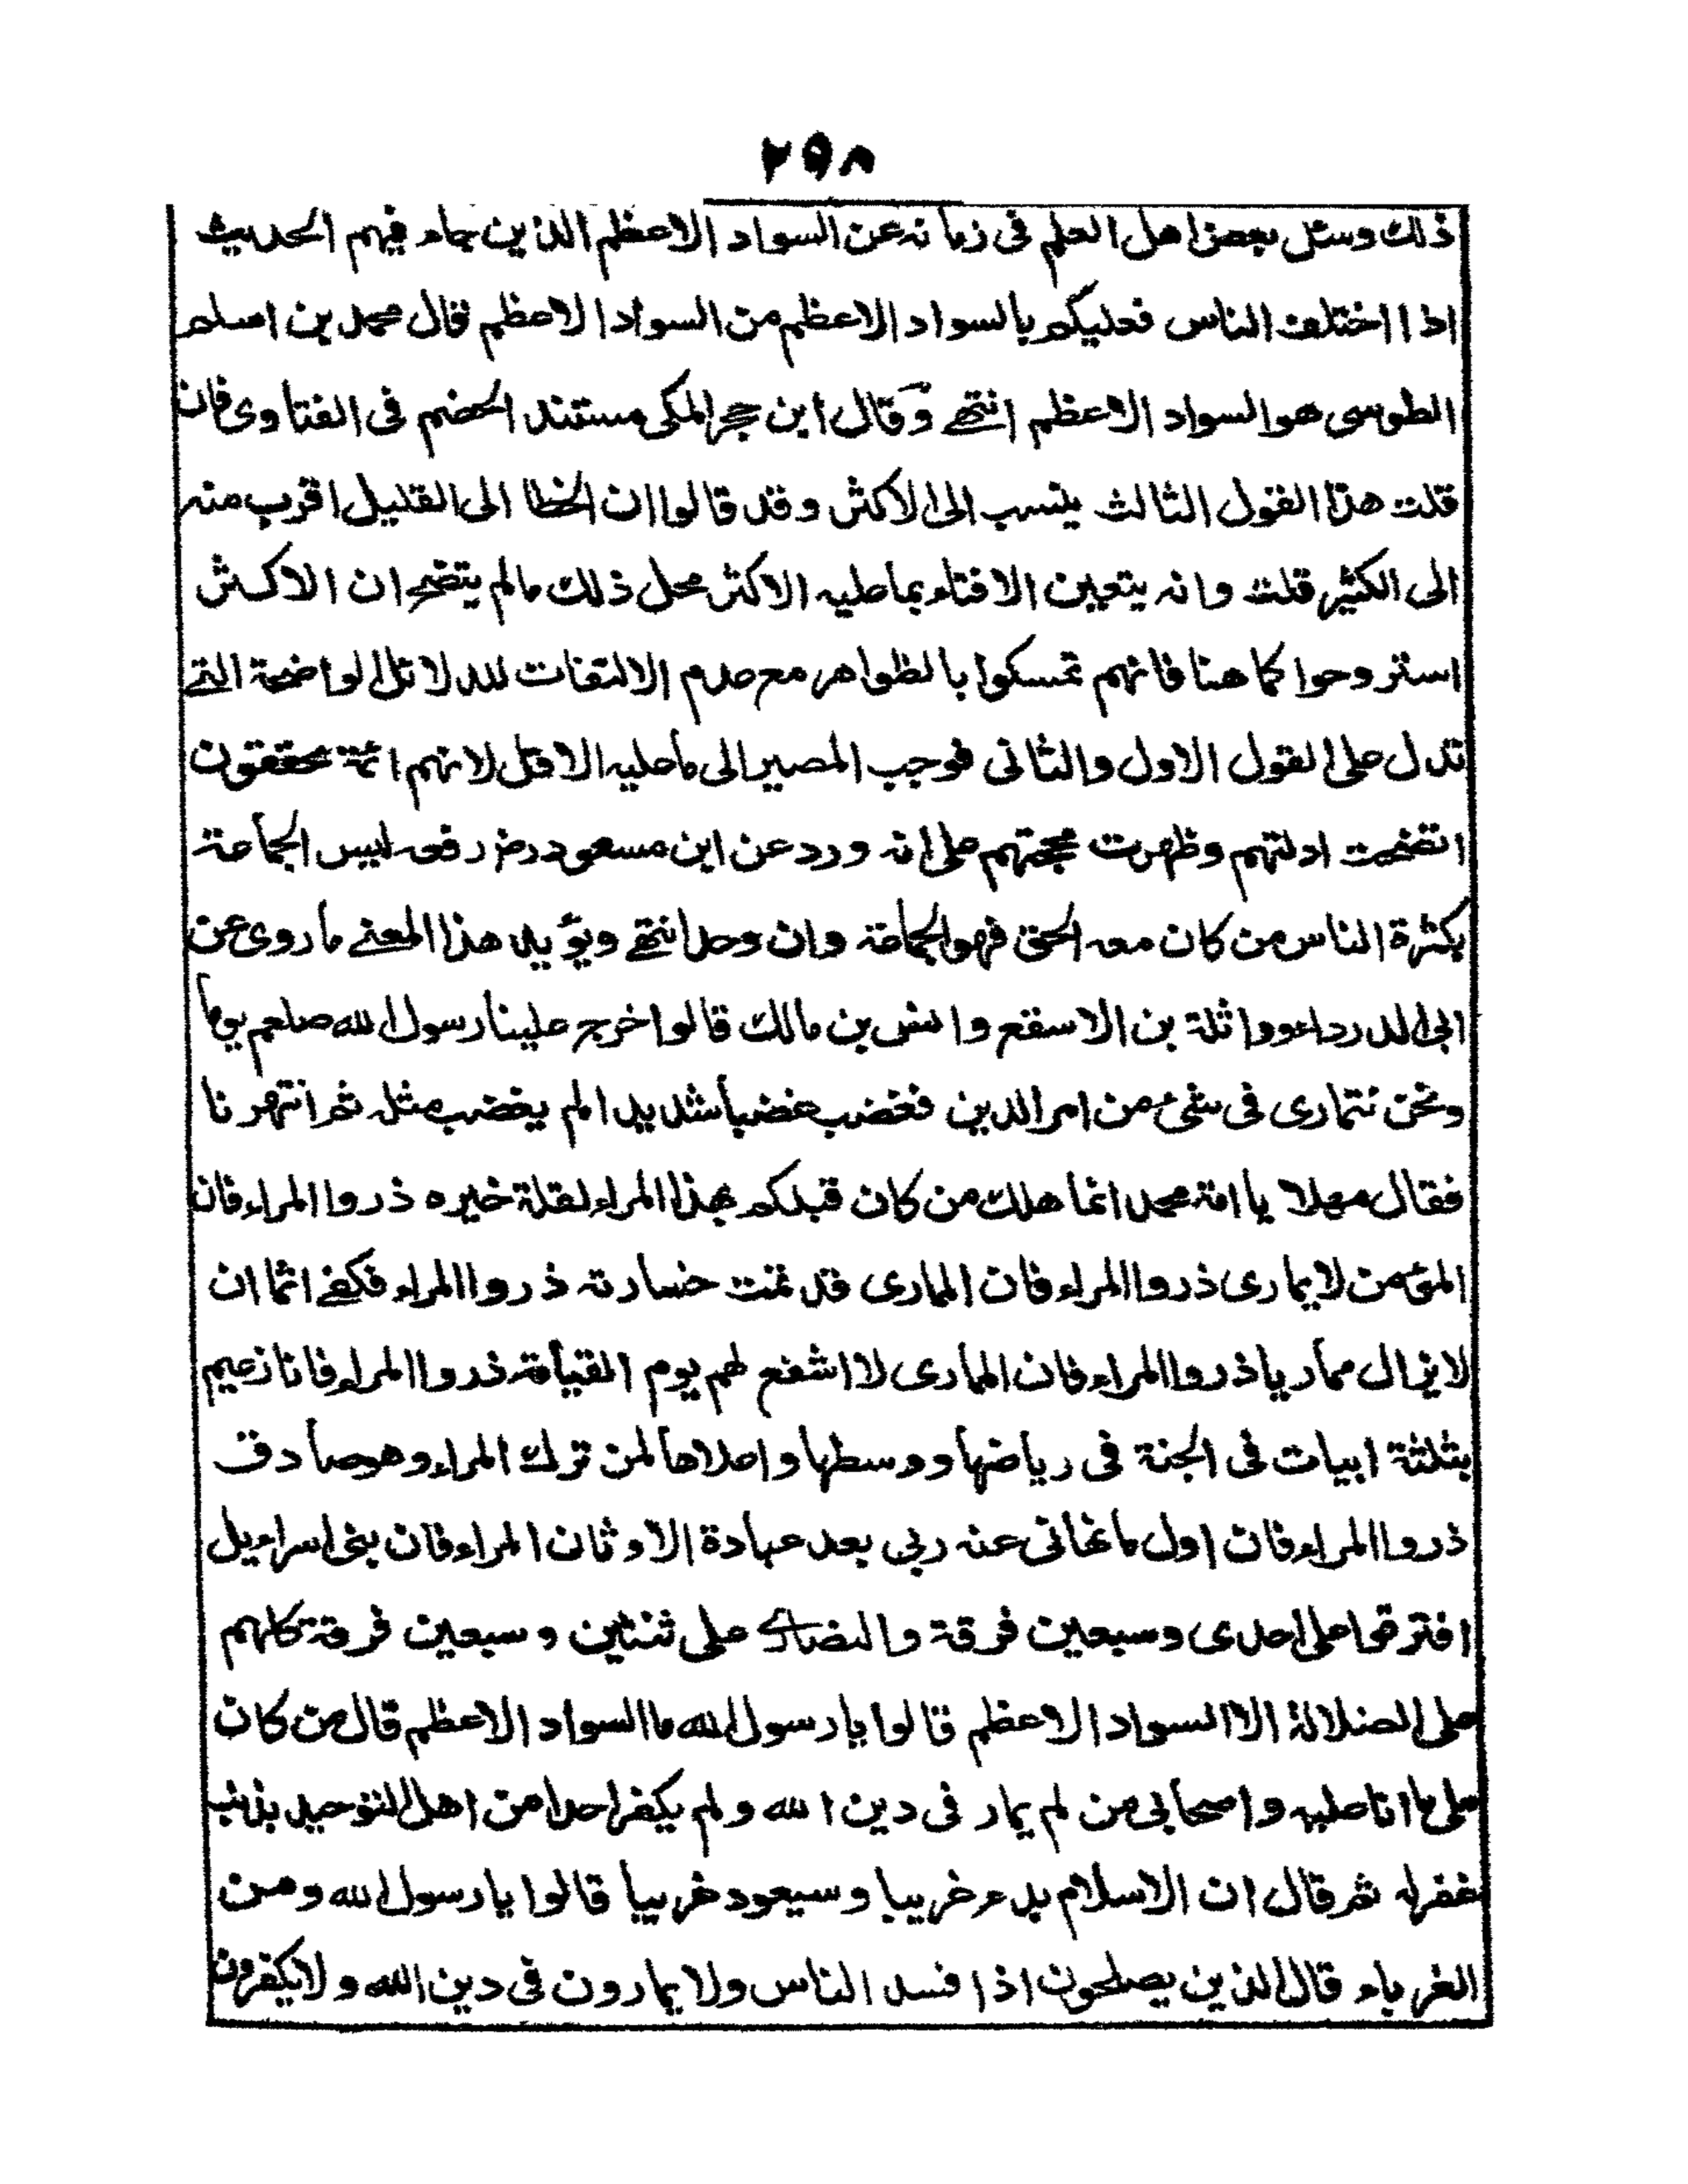 ٢٥٨
ذلك وسئل بعض اهل العلم فى زمانه عن السواد الاعظم الذين جاء فيهم الحديث
اذا اختلف الناس فعليكم بالسواد الاعظم من السواد الاعظم قال محمد بن اسلم
الطوسى هو السواد الاعظم انتهے وقال ابن حجر المكى مستند الخصم فى الفتاوى فان
قلت هذا القول الثالث ينسب الى الاكثر وقد قالوا ان الخطا الى القليل اقرب منه
الى الكثير قلت وانه يتعين الافتاء بما عليه الاكثر محل ذلك مالم يتضح ان الاكثر
استروحوا كما هنا فانهم تمسكوا بالظواهر مع عدم الالتفات للدلائل الواضحة التے
تدل على القول الاول والثانى فوجب المصير الى ما عليه الاقل لانهم ائمة محققون
اتضحت ادلتهم وظهرت حجتهم على انه ورد عن ابن مسعود رض رفعه ليس الجماعة
بكثرة الناس من كان معه الحق فهو الجماعة وان وحد انتهے ويؤيد هذا المعنے ما روى عن
ابى الدرداء وواثلة بن الاسقع وانس بن مالك قالوا خرج علينا رسول الله صلعم يوما
ونحن نتمارى فى شئ من امر الدين فغضب غضبا شديدا لم يغضب مثله ثم انتهرنا
فقال مهلا يا امة محمد انما هلك من كان قبلكم بهذا المراء لقلة خيره ذروا المراء فان
المؤمن لا يمارى ذروا المراء فان الممارى قد تمت خسارته ذروا المراء فكفے اثما ان
لا يزال مماريا ذروا المراء فان الممارى لا اشفع لهم يوم القيامة ذروا المراء فانا زعيم
بثلثة ابيات فى الجنة فى رياضها ووسطها واعلاها لمن ترك المراء وهو صادق
ذروا المراء فان اول ما نهانى عنه ربى بعد عبادة الاوثان المراء فان بنى اسراءيل
افترقوا على احدى وسبعين فرقة والنصارے على ثنتين وسبعين فرقة كلهم
على الضلالة الا السواد الاعظم قالوا يا رسول الله ما السواد الاعظم قال من كان
على ما انا عليه واصحابى من لم يمار فى دين الله ولم يكفر احدا من اهل التوحيد بذنب
غفر له ثم قال ان الاسلام بدء غريبا وسيعود غريبا قالوا يا رسول الله ومن
الغرباء قال الذين يصلحون اذا فسد الناس ولا يمارون فى دين الله ولا يكفرون